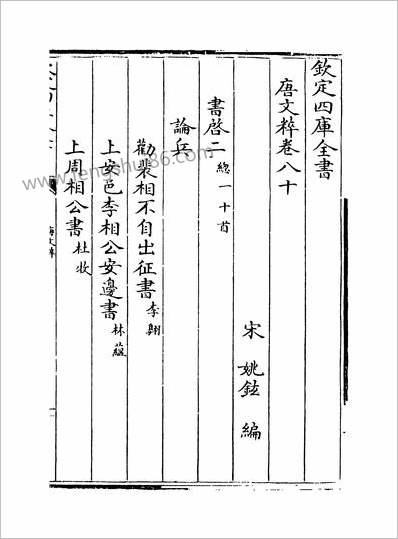 欽定四庫全書
唐文粹卷八十
宋 姚鉉 編
書啓二 總一十首
論兵
勸裴相不自出征書 李翺
上安邑李相公安邊書 林蘊
上周相公書 杜牧